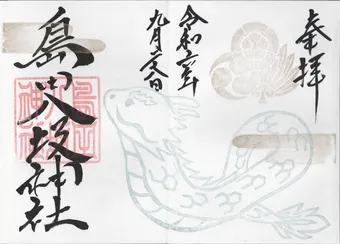 奉拝
令和六年
九月二八日
島田八坂神社